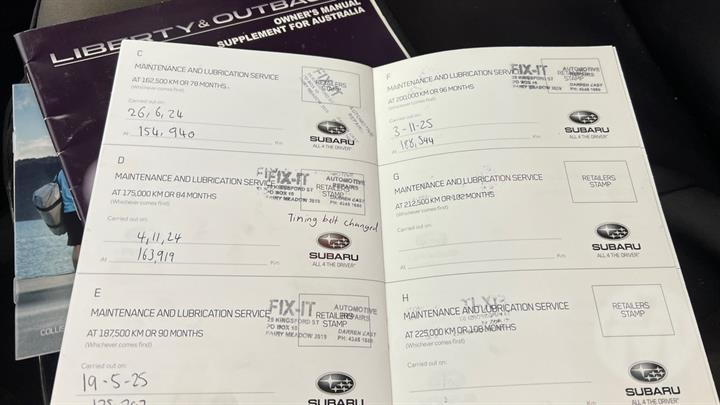 LIBERTY & OUTBA
OWNER'S MANUAL
SUPPLEMENT FOR AUSTRALIA
C
MAINTENANCE AND LUBRICATION SERVICE
AT 162,500 KM OR 78 MONTHS
(Whichever comes first)
RETAILERS
STAMP
Carried out on:
26,6,24
At 154,940 Km
SUBARU
ALL 4 THE DRIVER
D
MAINTENANCE AND LUBRICATION SERVICE
AT 175,000 KM OR 84 MONTHS
(Whichever comes first)
FIX-IT AUTOMOTIVE REPAIRS
PO BOX 16
FAIRY MEADOW 2519
DARREN CAST
Timing belt changed
Carried out on:
4,11,24
At 163,919 Km
SUBARU
ALL 4 THE DRIVER
E
MAINTENANCE AND LUBRICATION SERVICE
AT 187,500 KM OR 90 MONTHS
(Whichever comes first)
FIX-IT AUTOMOTIVE REPAIRS
PO BOX 16
FAIRY MEADOW 2519
DARREN CAST
STAMP
Carried out on:
19-5-25
SUBARU
F
MAINTENANCE AND LUBRICATION SERVICE
AT 200,000 KM OR 96 MONTHS
(Whichever comes first)
FIX-IT AUTOMOTIVE
FAIRY MEADOW 2519
DARREN CAST
Carried out on:
3-11-25
At 188,544 Km
SUBARU
ALL 4 THE DRIVER
G
MAINTENANCE AND LUBRICATION SERVICE
AT 212,500 KM OR 102 MONTHS
(Whichever comes first)
RETAILERS
STAMP
Carried out on:
At Km
SUBARU
ALL 4 THE DRIVER
H
MAINTENANCE AND LUBRICATION SERVICE
AT 225,000 KM OR 108 MONTHS
(Whichever comes first)
RETAILERS
STAMP
Carried out on:
SUBARU
COLLIS